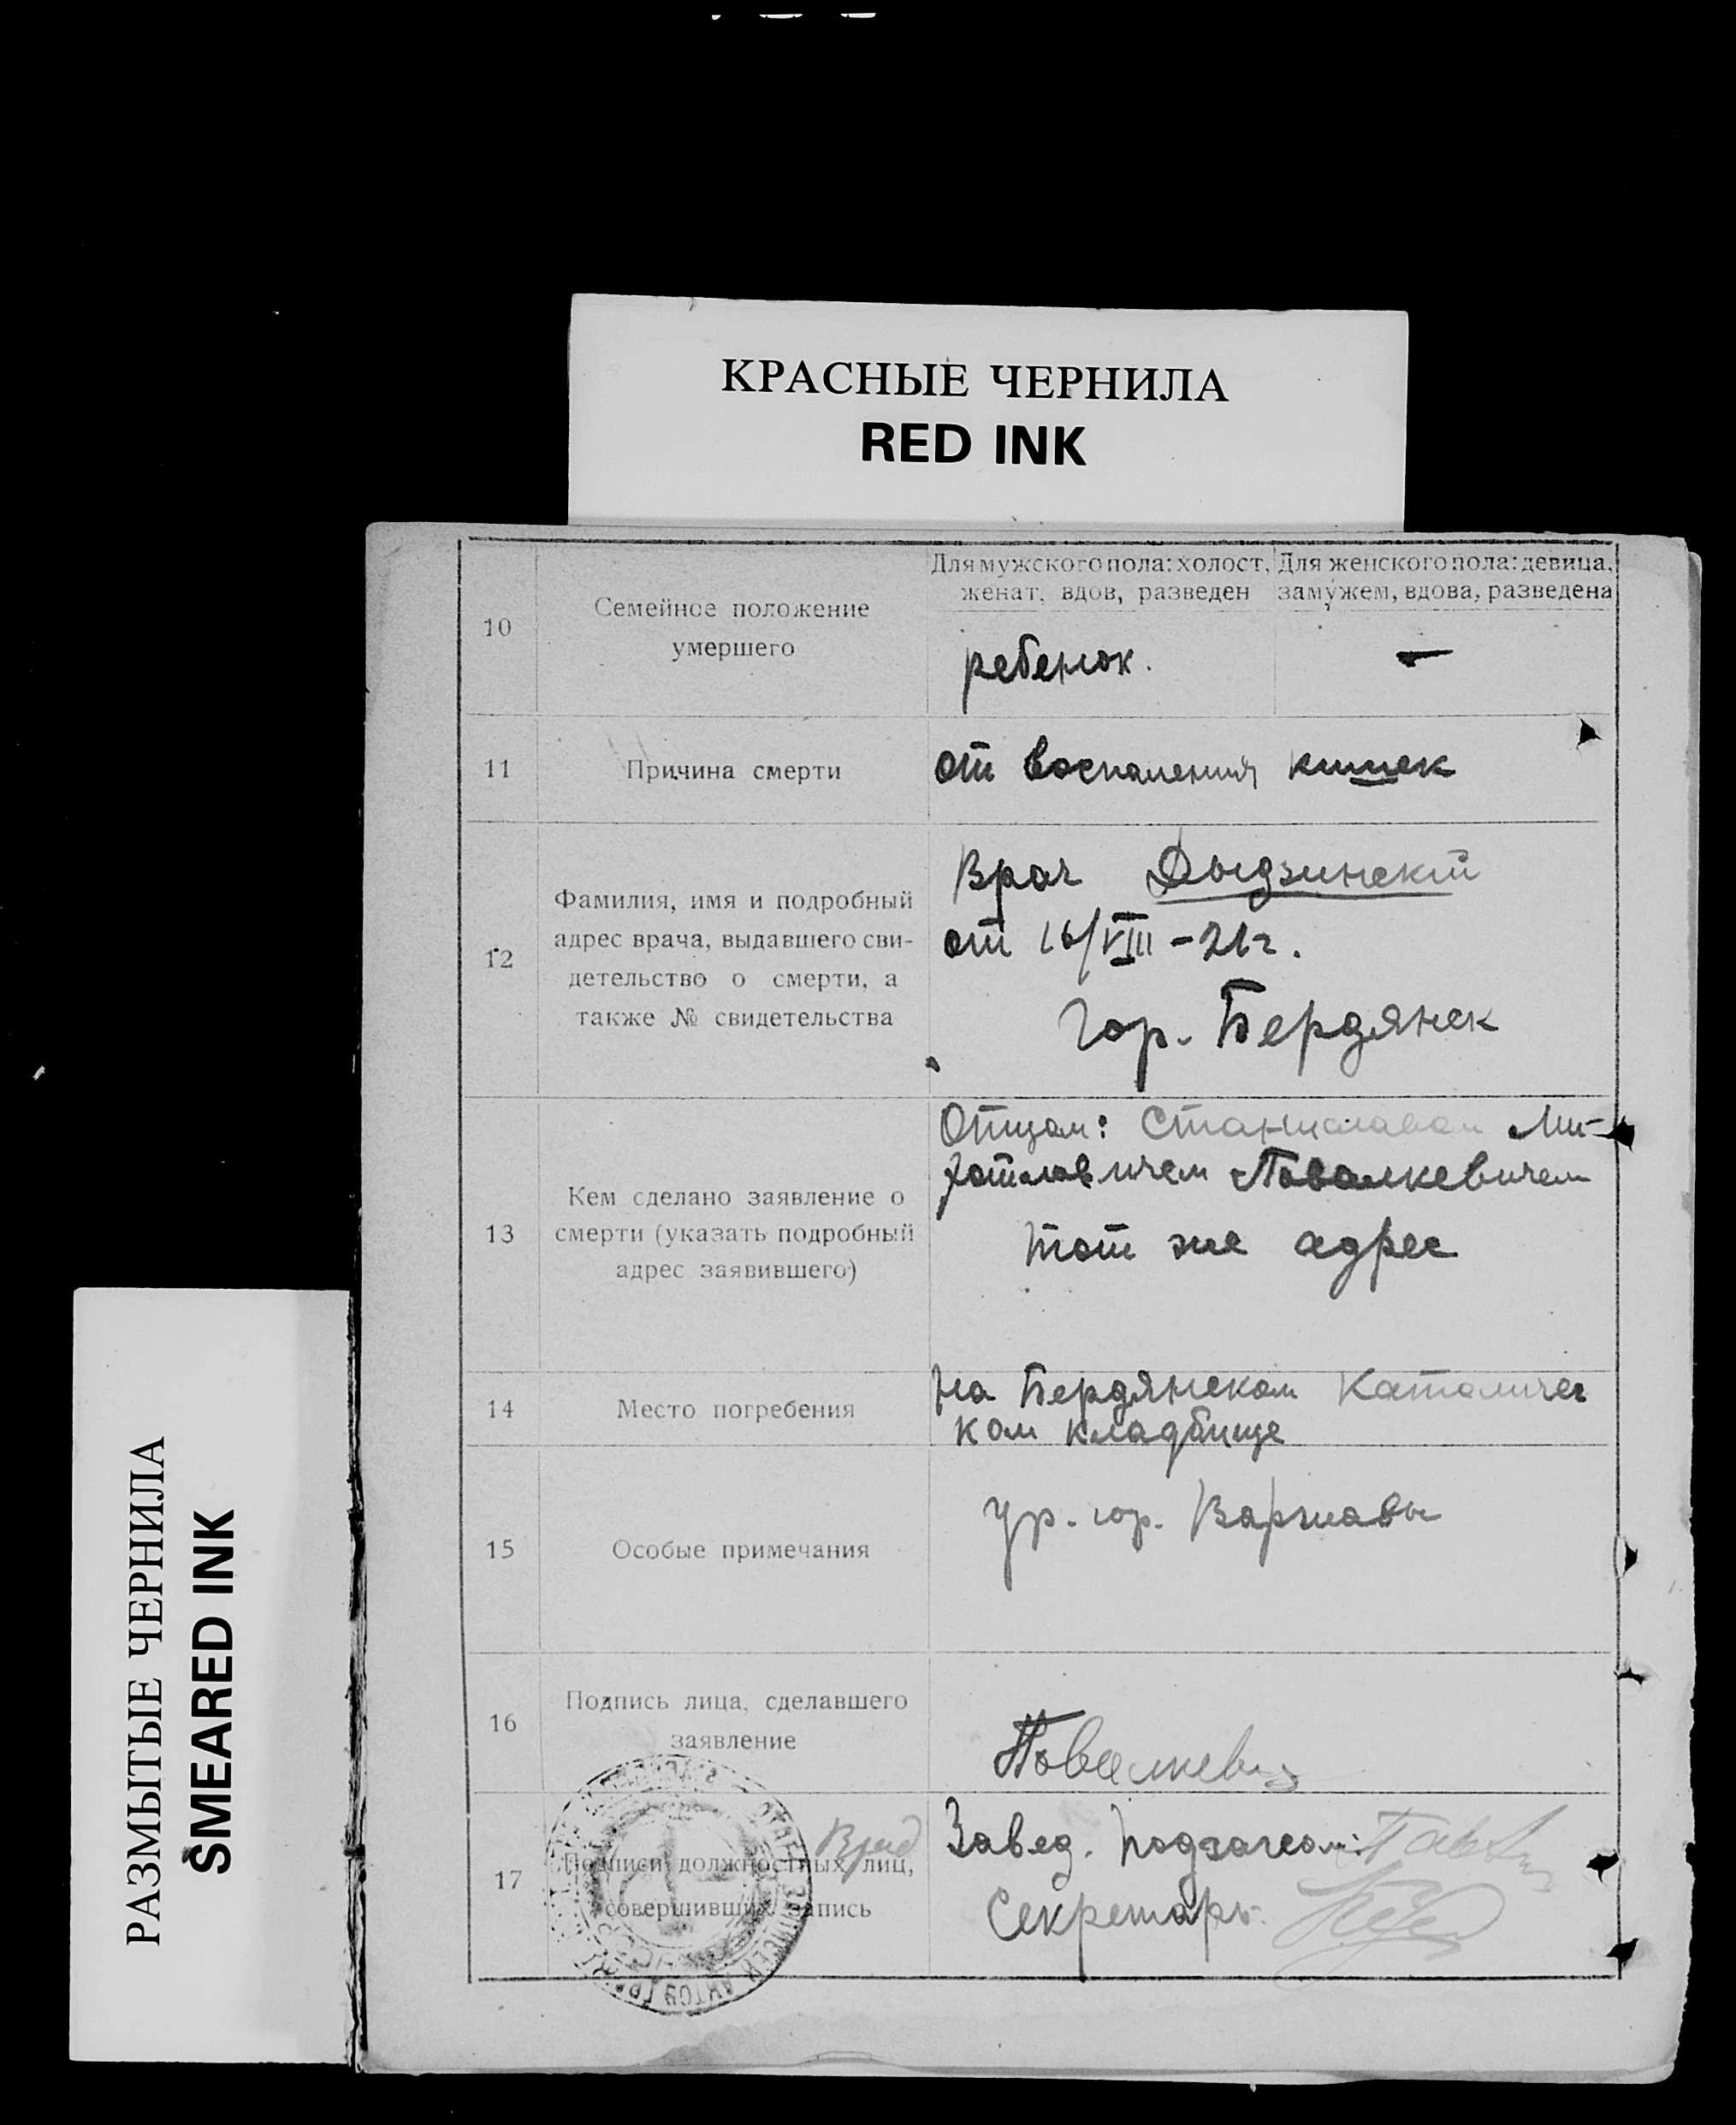 КРАСНЫЕ ЧЕРНИЛА
RED INK
РАЗМЫТЫЕ ЧЕРНИЛА
SMEARED INK
10
Семейное положение
умершего
Для мужского пола: холост,
женат, вдов, разведен
Для женского пола: девица,
замужем, вдова, разведена
ребенок.
—
11
Причина смерти
от воспаления кишек
12
Фамилия, имя и подробный
адрес врача, выдавшего сви-
детельство о смерти, а
также № свидетельства
Врач Дыдзинский
от 16/VIII - 21 г.
гор. Бердянск
13
Кем сделано заявление о
смерти (указать подробный
адрес заявившего)
Отцом: Станиславом
Повалкевичем
тот же адрес
14
Место погребения
на Бердянском Католичес
ком кладбище
15
Особые примечания
ур. гор. Варшавы
16
Подпись лица, сделавшего
заявление
Повалкевич
17
Подписи должностных лиц,
совершивших запись
Врид
Завед. Подзагсом:
Секретарь